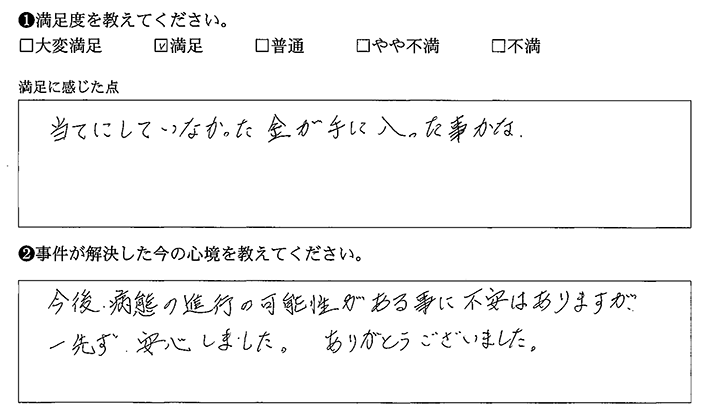 ❶満足度を教えてください。
□大変満足 ☑満足 □普通 □やや不満 □不満
満足に感じた点
当てにしていなかった金が手に入った事かな.
❷事件が解決した今の心境を教えてください。
今後.病態の進行の可能性がある事に不安はありますが、
一先ず.安心しました。 ありがとうございました。